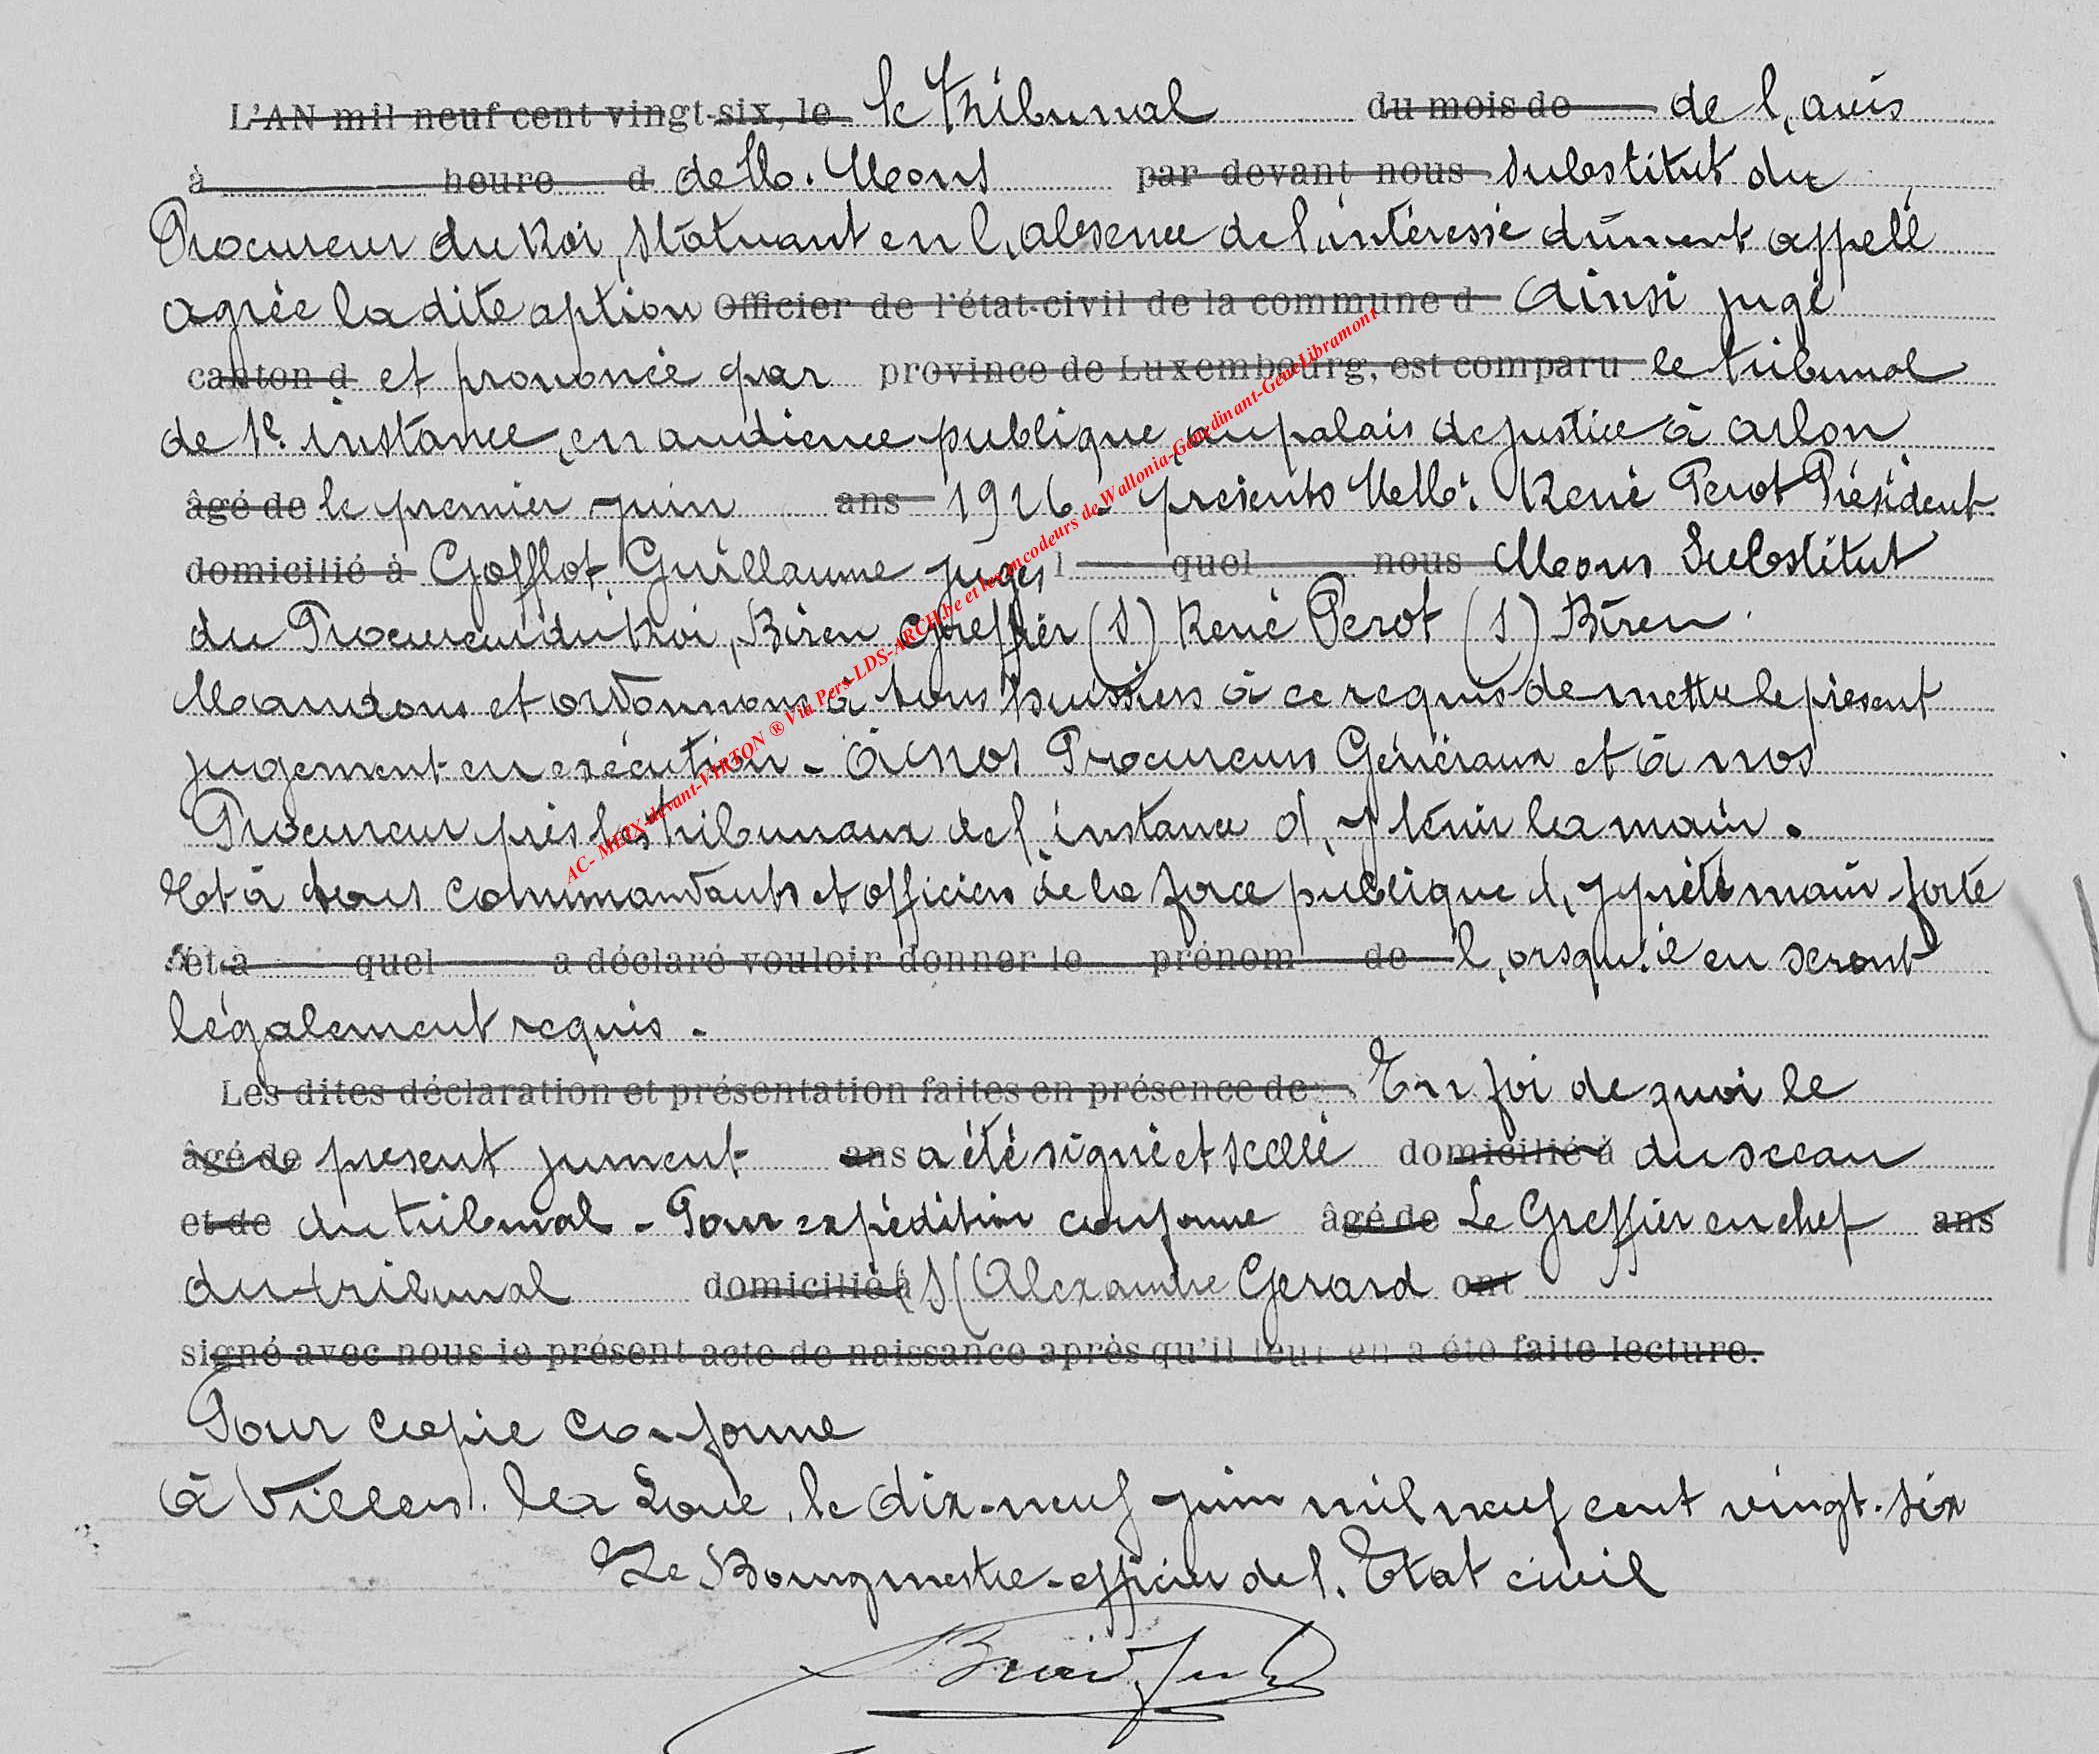 L'AN mil neuf cent vingt-six, le le tribunal du mois de de l'avis
à heure d de M. Mons par devant nous substitut du
Procureur du Roi, statuant en l'absence de l'intéressé dûment appelé
agrée la dite option Officier de l'état-civil de la commune d Ainsi jugé
canton d et prononcé par province de Luxembourg, est comparu le tribunal
de 1e. instance, en audience publique, au palais de justice à Arlon
âgé de le premier juin ans 1926. présents MM. René Perot Président
domicilié à Gofflot, Guillaume juges l quel nous Mons Substitut
du Procureur du Roi, Biren Greffier (s) René Perot (s) Biren.
Mandons et ordonnons à tous huissiers à ce requis de mettre le présent
jugement en exécution - à nos Procureurs Généraux et à nos
Procureur près les tribunaux de 1. instance d'y tenir la main.
Et à tous commandants et officiers de la force publique d'y prêté main-forte
et à quel a déclaré vouloir donner le prénom de l'orsqu'il en seront
légalement requis.-
Les dites déclaration et présentation faites en présence de En foi de quoi le
âgé de present jument ans a été signé et scellé domicilié à du sceau
et de du tribunal - Pour expédition conforme âgé de Le Greffier en chef ans
du tribunal domicilié à (s( Alexandre Gerard ont
signé avec nous le présent acte de naissance après qu'il leur en a été faite lecture.
Pour copie conforme
à Villers. la Loue, le dix-neuf juin mil neuf cent vingt-six
Le Bourgmestre-officier de l'Etat civil
AC- MEIX-devant-VIRTON ® Via Pers-LDS-ARCH.be et les encodeurs de Wallonia-Genedinant-GeneLibramont